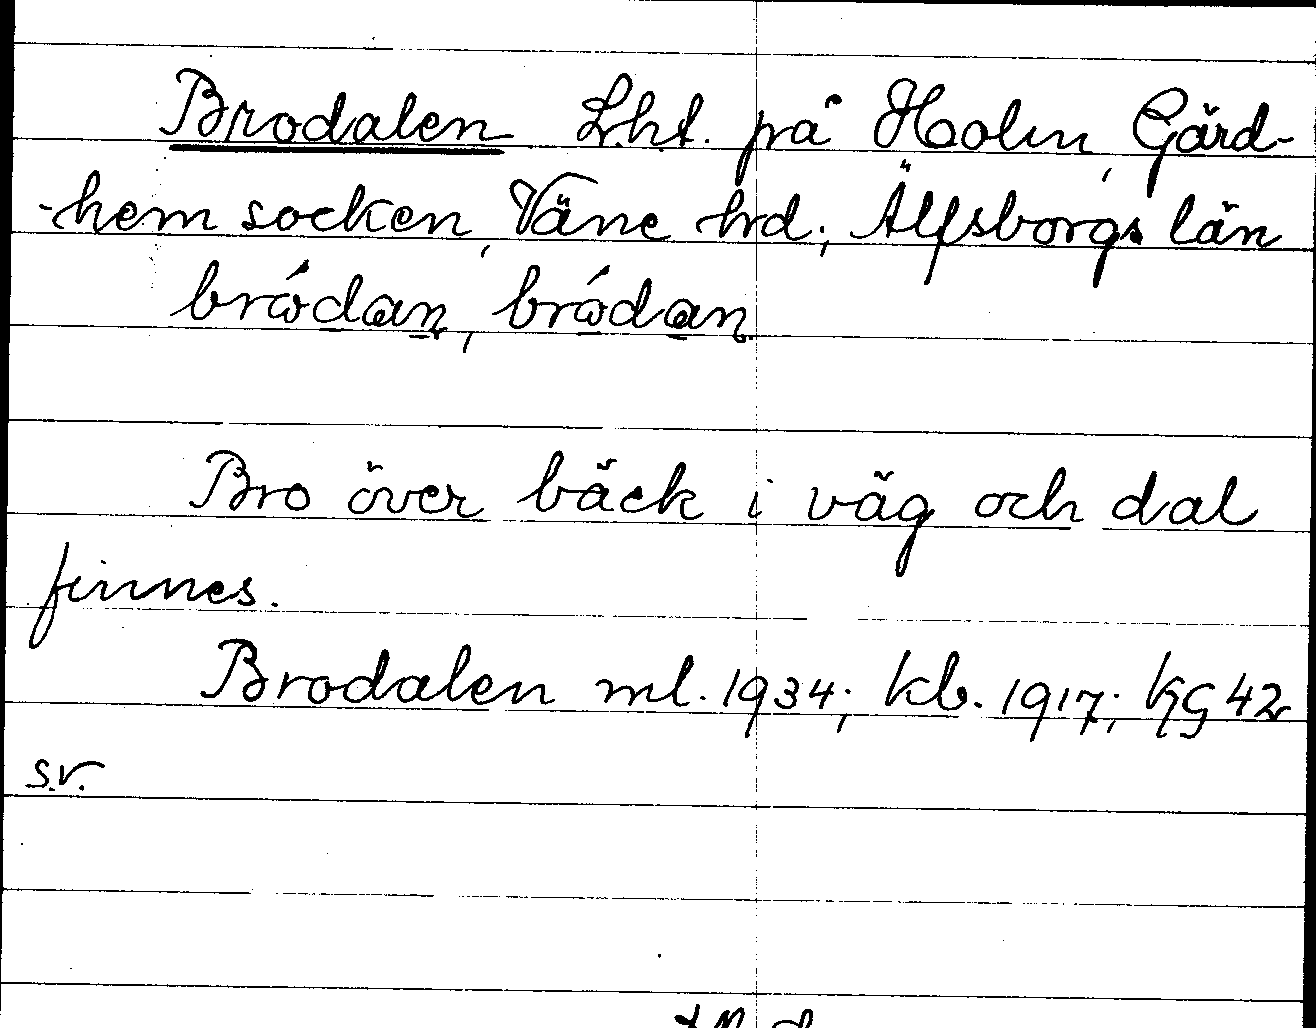 Brodalen L.ht. på Holm, Gärd-
-hem socken, Väne hrd; Älfsborgs län
bródan, bródan.
Bro över bäck i väg och dal
finnes.
Brodalen ml. 1934; kb. 1917; KG 42
s.v.